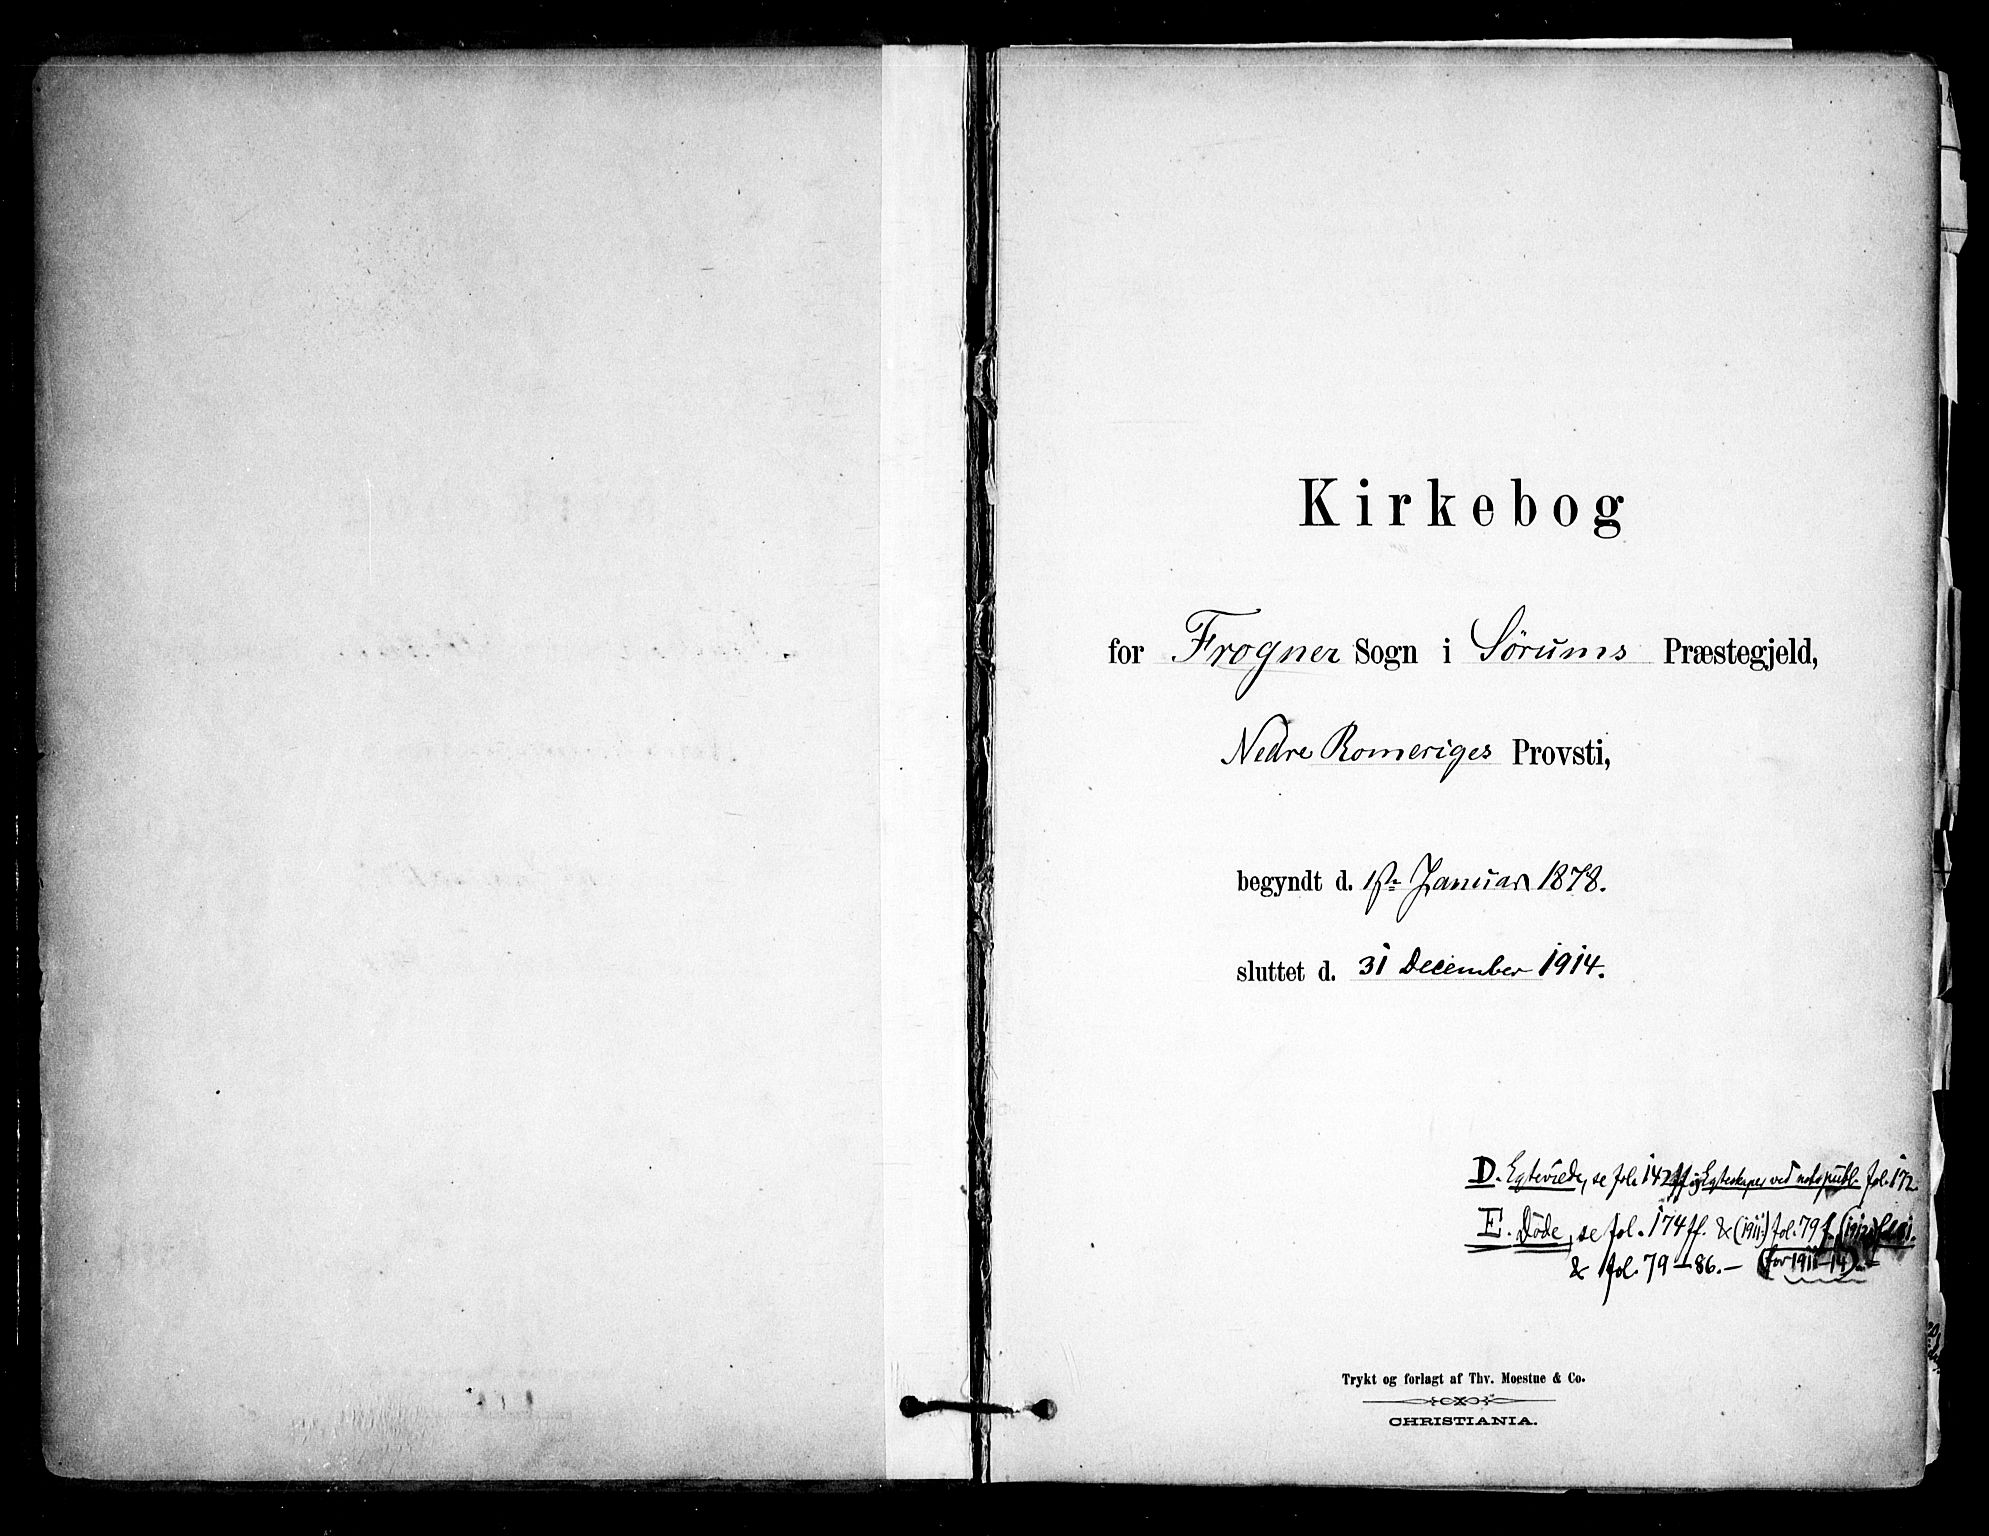 Kirkebog
for Frogner Sogn i Sørums Præstegjeld,
Nedre Romeriges Provsti,
begyndt d. 1ste Januar 1878.
sluttet d. 31 December 1914.
D. Egteviede, se fol. 142 ff og Egteskaper ved not. publ. fol. 172.
E. Døde, se fol. 174 ff. & (1911:) fol. 79 f. (1912)
& fol. 79-86.- (for 1911-14).-
Trykt og forlagt af Thv. Moestue & Co.
CHRISTIANIA.